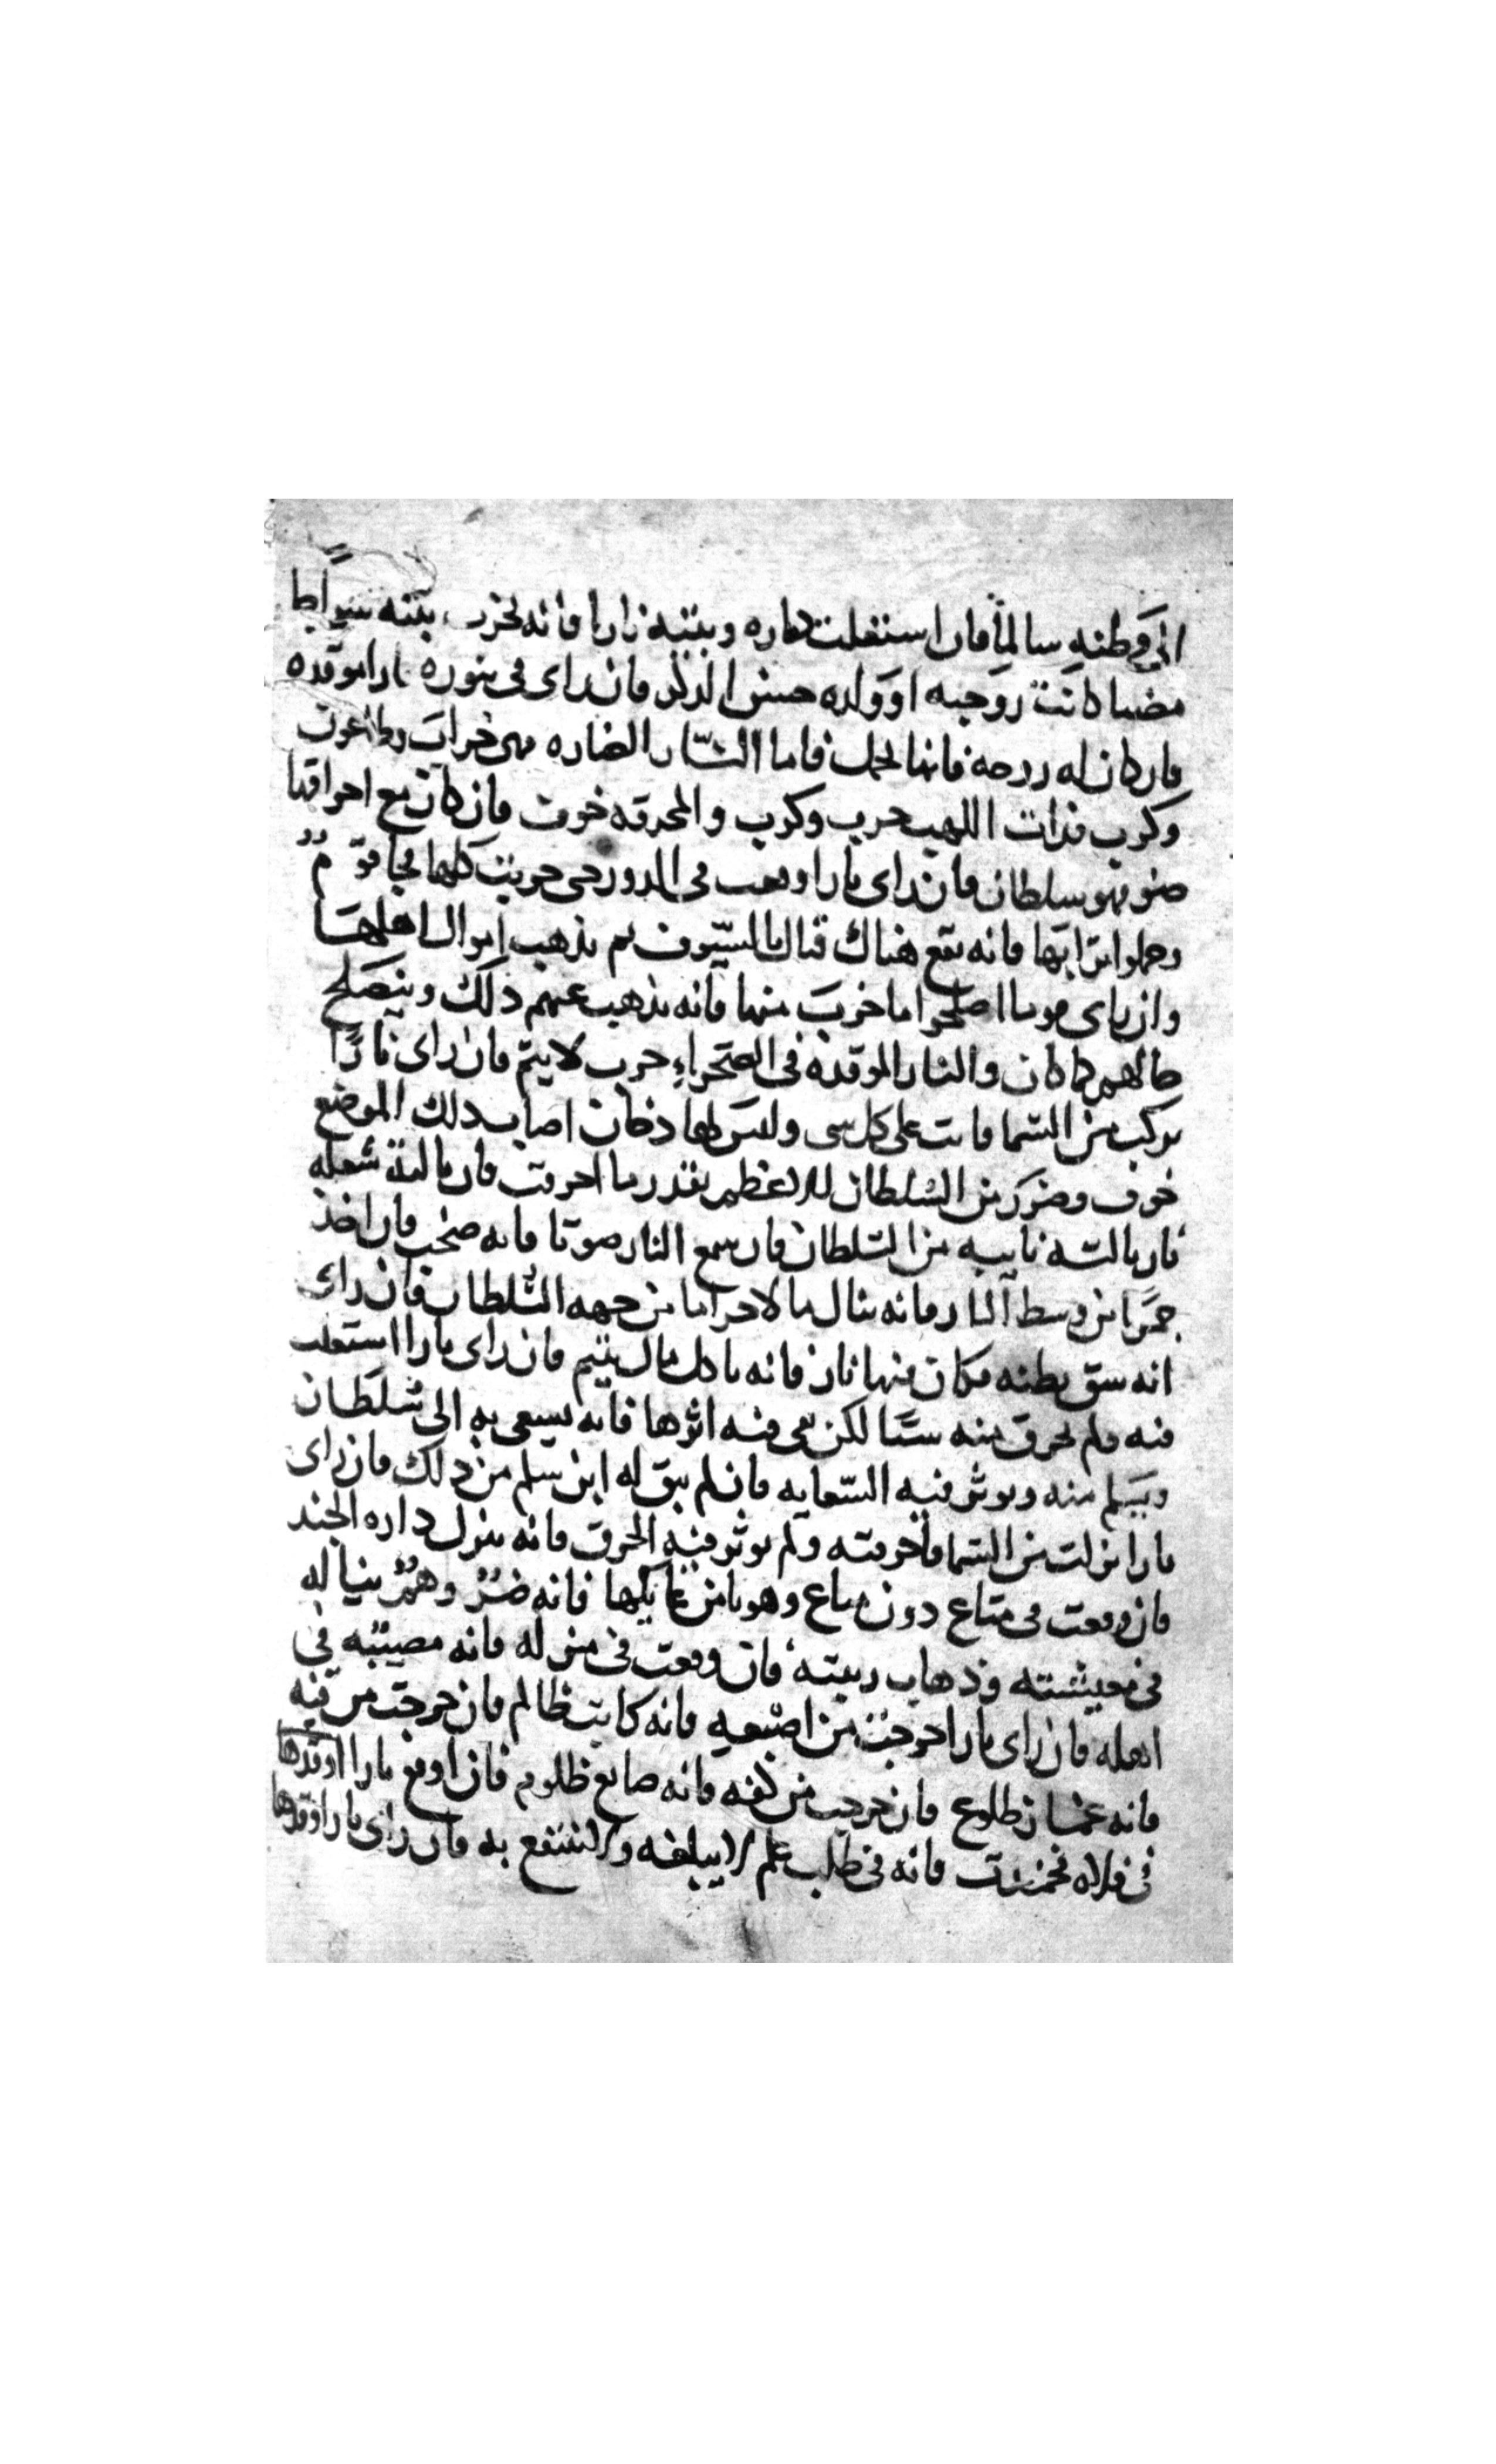 الى وطنه سالما فان استعلت داره وبيته نارا فانه بيته
كانت زوجته او ولده حسن الذكر فان راى فى تنوره نارا موقده
فان كان له زوجه فانها تحمل فاما النار الضاره فهى خراب وطاعون
وكرب فذات اللهب حرب وكرب والمحرقه خوف فان كان مع احراقها
ضو فهو سلطان فان راى نارا وقعت فى الدور حتى خربت كلها فجا قوم
وحملوا ترابها فانه يقع هناك قتال بالسيوف ثم يذهب اموال اهلها
وان راى قوما اصلحوا ما خرب منها فانه يذهب عنهم ذلك وينصلح
حالهم كما كان والنار الموقده فى الصحراء حرب لا يتم فان راى نارا
من السما فاتت على كل شى وليس لها دخان اصاب ذلك الموضع
خوف وضرر من السلطان الاعظم بقدر ما احرقت فان نالته شعله
نار نالته نايبه من السلطان فان سمع النار صوتا فانه صخب فان اخذ
جمرا من وسط النار فانه ينال مالا حراما من جهه السلطان فان راى
انه شق بطنه فكان فيها نار فانه ياكل مال يتيم فان راى نارا استعلت
فيه ولم تحرق منه شيا لكن بقى فيه اثرها فانه يسعى به الى سلطان
ويسلم منه ويوثر فيه السعايه فان لم يبق له اثر سلم من ذلك فان راى
نارا نزلت من السما فاحرقته ولم يوثر فيه الحرق فانه ينزل داره الجند
فان وقعت فى متاع دون متاع وهو يامن غايلتها فانه ضرر وهم يناله
فى معيشته وذهاب فان وقعت فى منزله فانه مصيبه فى
اهله فان راى نارا خرجت من اصبعه فانه كاتب ظالم فان خرجت من فيه
فانه فان خرجت من كفه فانه صانع ظلوم فان اوقع نارا اوقدها
فى فلاه فخمدت فانه فى طلب علم لا يبلغه ولا ينتفع به فان راى نارا اوقدها